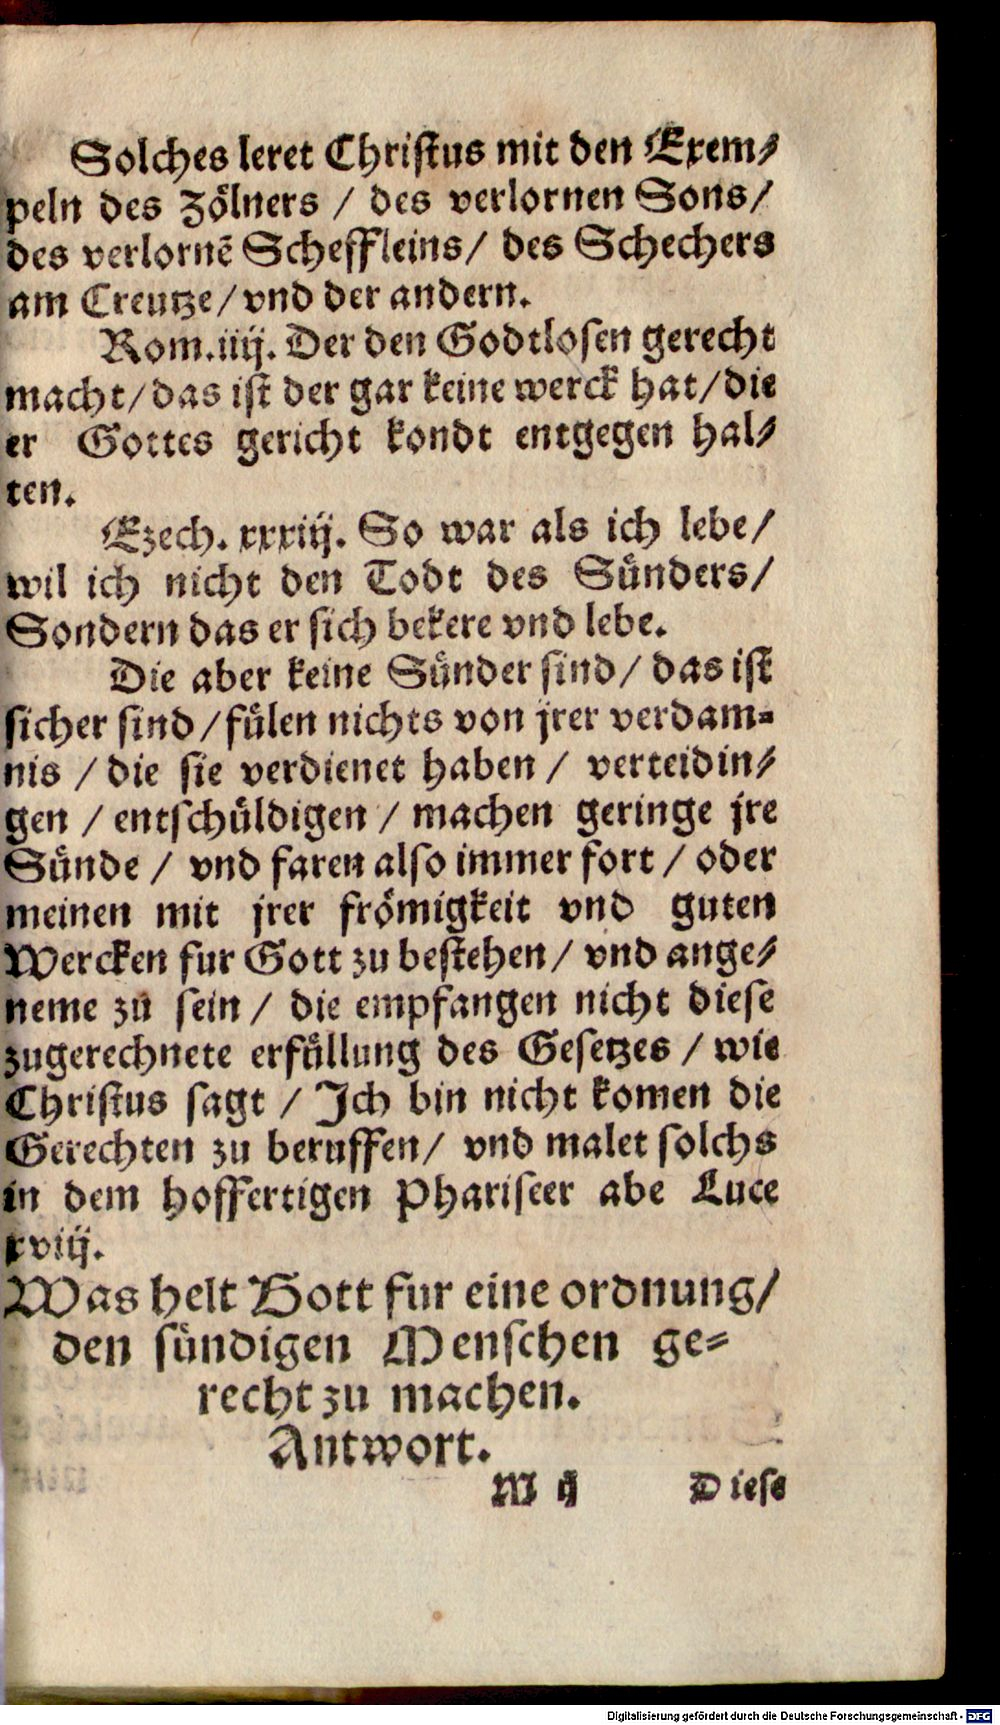 Solches leret Christus mit den Exem⸗
peln des Zölners / des verlornen Sons /
des verlornē Scheffleins / des Schechers
am Creutze / vnd der andern.
Rom. iiij. Der den Godtlosen gerecht
macht / das ist der gar keine werck hat / die
er Gottes gericht kondt entgegen hal⸗
ten.
Ezech. xxxiij. So war als ich lebe /
wil ich nicht den Todt des Sünders /
Sondern das er sich bekere vnd lebe.
Die aber keine Sünder sind / das ist
sicher sind / fülen nichts von jrer verdam⸗
nis / die sie verdienet haben / verteidin⸗
gen / entschüldigen / machen geringe jre
Sünde / vnd faren also immer fort / oder
meinen mit jrer frömigkeit vnd guten
Wercken fur Gott zu bestehen / vnd ange⸗
neme zu sein / die empfangen nicht diese
zugerechnete erfüllung des Gesetzes / wie
Christus sagt / Ich bin nicht komen die
Gerechten zu beruffen / vnd malet solchs
in dem hoffertigen Phariseer abe Luce
xviij.
Was helt Gott fur eine ordnung /
den sündigen Menschen ge⸗
recht zu machen.
Antwort.
M ij Diese
Digitalisierung gefördert durch die Deutsche Forschungsgemeinschaft - DFG